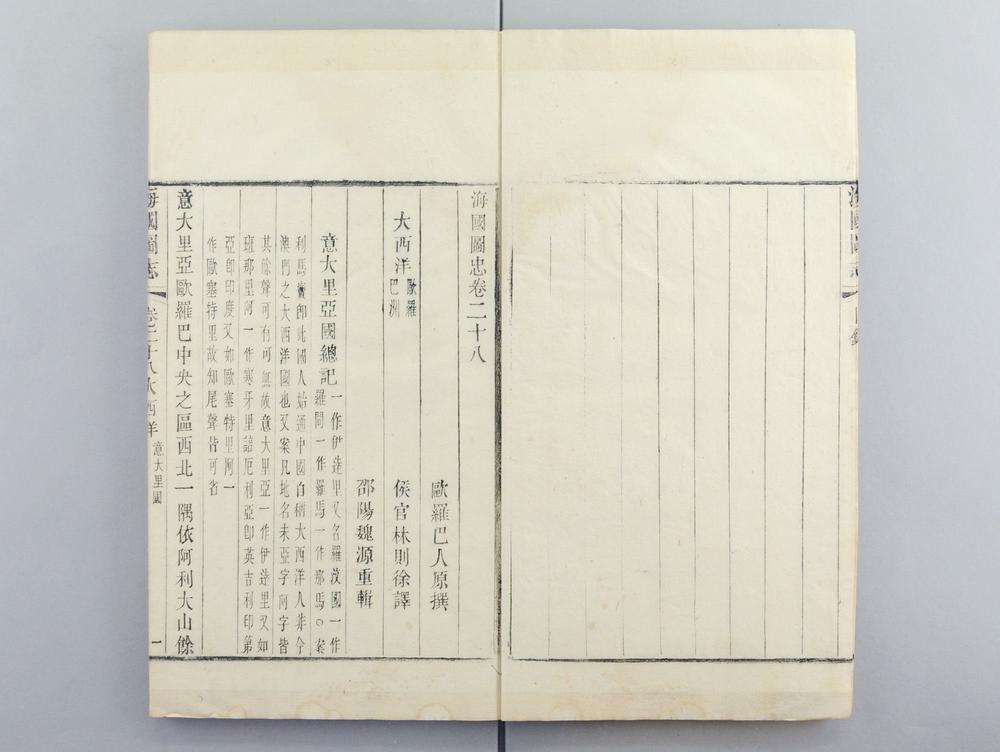 海國圖志
海國圖忠卷二十八
歐羅巴人原撰
大西洋歐羅巴洲 侯官林則徐譯
邵陽魏源重輯
意大里亞國總記一作伊達里又名羅汶國一作
羅問一作羅馬一作那馬○案
利馬竇卽此國人始通中國自稱大西洋人非今
澳門之大西洋國也又案凡地名末亞字阿字皆
其餘聲可有可無故意大里亞一作伊達里又如
班那里阿一作寒牙里諳厄利亞卽英吉利印第
亞卽印度又如歐塞特里阿一
作歐塞特里故知尾聲皆可省
意大里亞歐羅巴中央之區西北一隅依阿利大山餘
海國圖志 卷二十八大西洋 意大里國 一